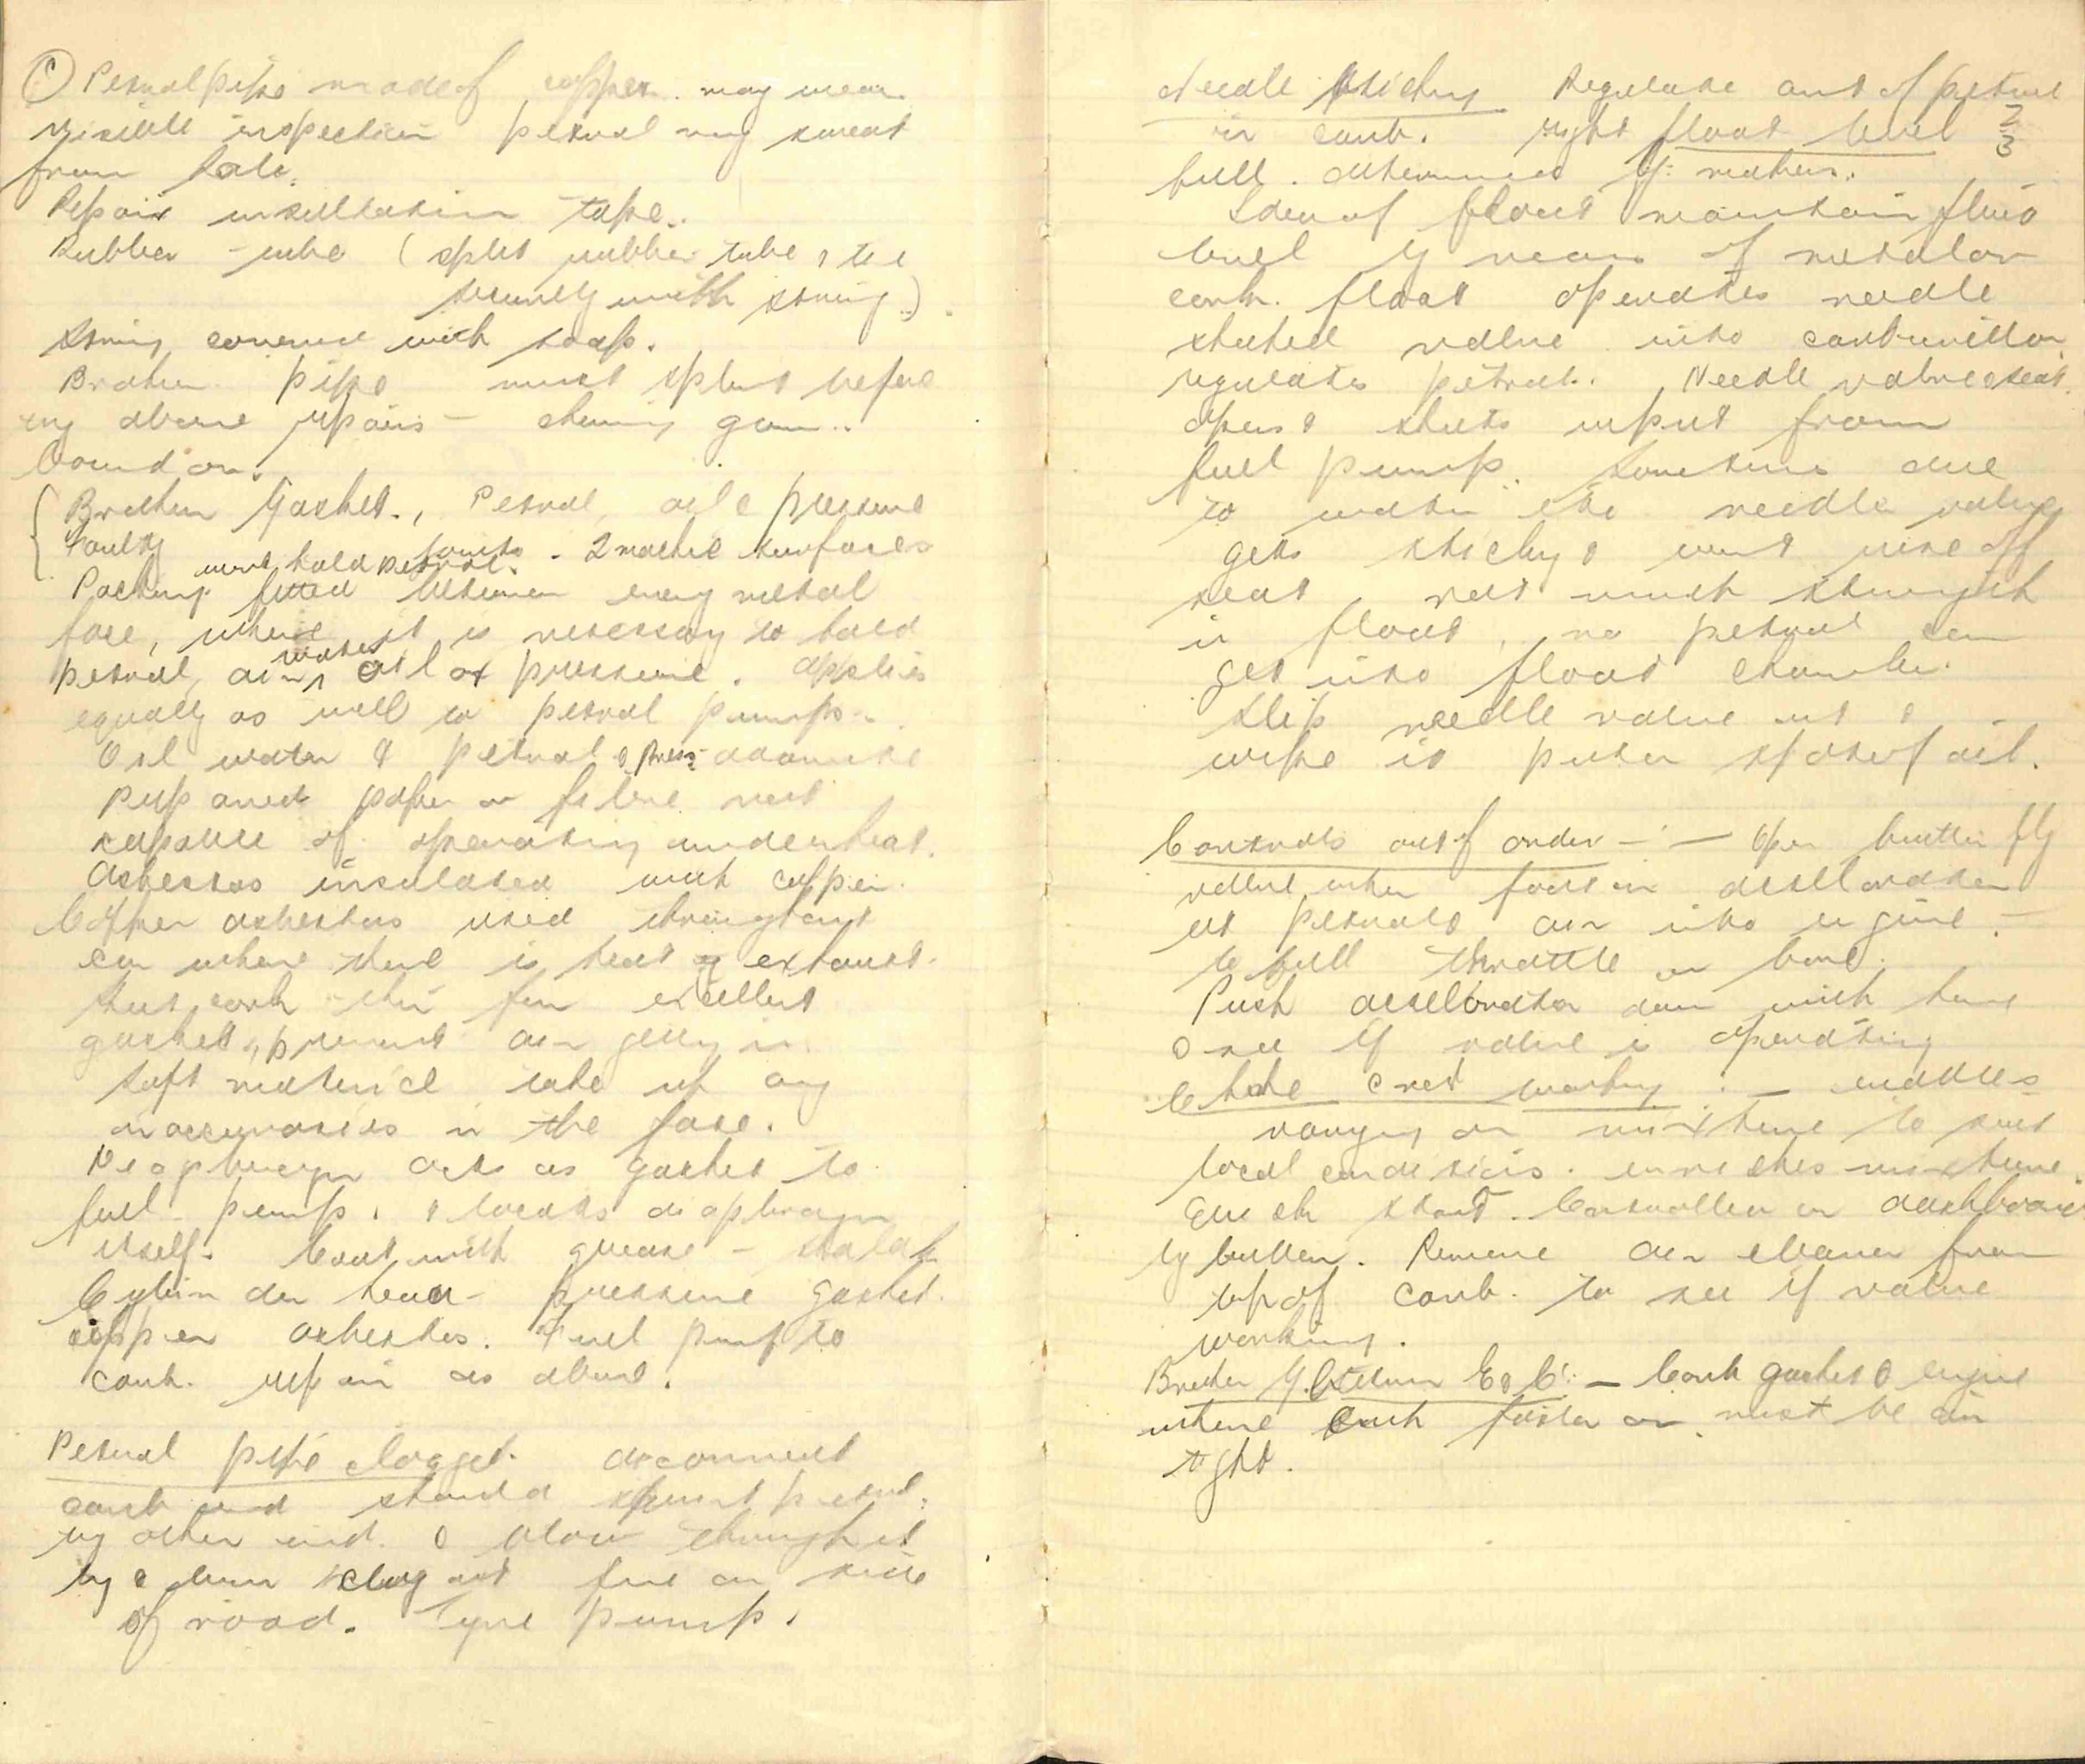 Petrol pipe made of copper. may wear
visible inspection petrol may sweat
from hole.
Repair insullation tape.
Rubber tube (split rubber tube & tie
securely with string.)
String covered with soap.
Broken pipe must splint before
any above repairs - chewing gum..
bound on.
Broken Gasket., Petrol, oil & pressure
Faulty joints - 2 surfaces
must hold petrol.
Packing fitted between every metal
face, where it is necessary to hold
petrol, air, water, oil or pressure. applies
equally as well to petrol pumps.
Oil water & petrol & press.
prepared paper or fibre not
capable of operating under heat.
Asbestos insulated with copper.
Copper asbestos used throughout
car where there is heat exhaust.
but cork thin fin excellent
gaskets, prevent air getting in.
Soft material take up any
inaccuracies in the face.
diaphragm acts as gasket to
fuel pump, & locates diaphragm
itself. Coat with grease -
Cylinder head - pressure gasket.
copper asbestos. Fuel pump to
carb. repair as above.
Petrol pipe clogget. disconnect
carb end should spurt petrol.
try other end. & blow through it
by & burn clog out fire on side
of road. Tyre pump.
Needle sticking Regulate amt of petrol
in carb. right float level 2/3
full. determined by makers.
Idea of float maintain fluid
level by means of metal or
cork. float operates needle
shuted valve into carburettor
regulates petrol. Needle valve & seat
opens & shuts input from
fuel pump. Sometimes due
to water etc needle valve
gets sticky & wont rise off
seat, not much strength
in float, no petrol can
get into float chamber.
Slip needle valve out &
wipe it put on spot of oil.
Controls out of order - : - Open butterfly
valve when foot on accellorator
let petrol & air into engine -
to full throttle or bare.
Push accellorator down with hand
& see if valve is operating
Choke & not working : - enables
varying on mixture to suit
local condisions. enriches mixture.
Quick start. Controlled on dashboard
by button. Remove air cleaner from
top of carb. to see if valve
working.
Broken G. between E & C: - Carb gasket & engine
where carb fasten on must be air
tight.